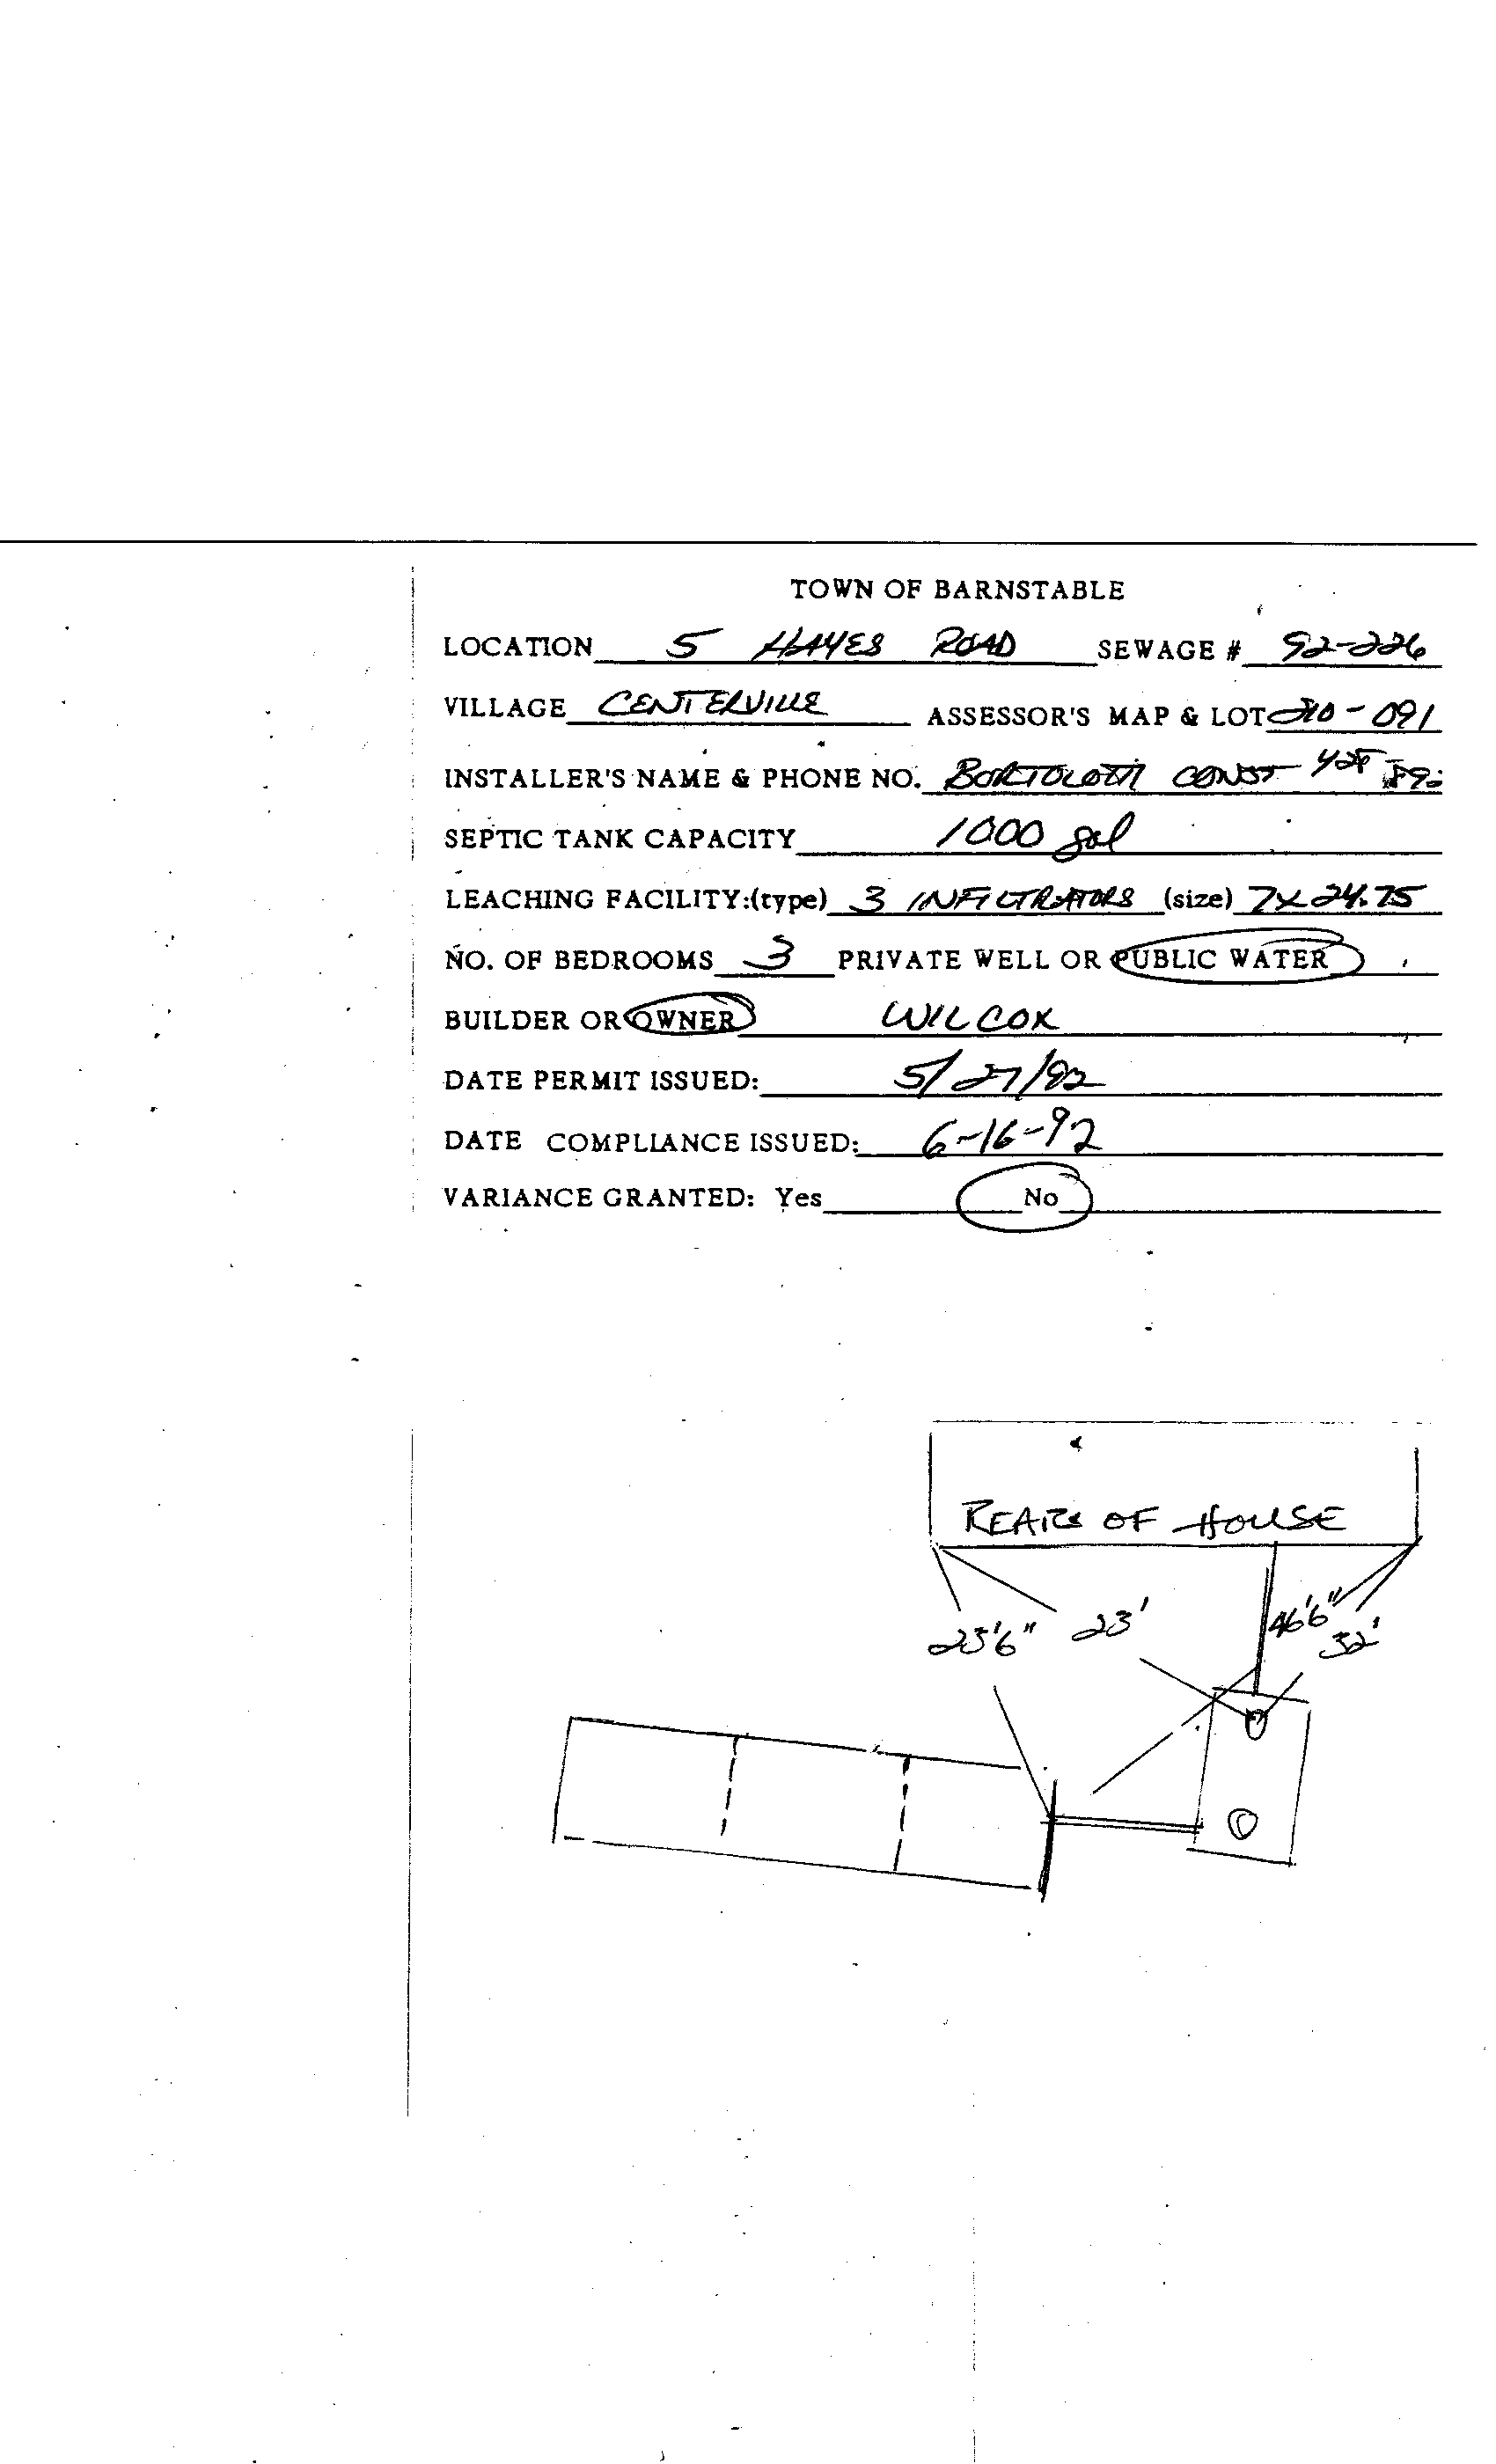 TOWN OF BARNSTABLE
LOCATION 5 HAYES ROAD SEWAGE # 92-226
VILLAGE CENTERVILLE ASSESSOR'S MAP & LOT 210-091
INSTALLER'S NAME & PHONE NO. BORTOLOTTI CONST 428
SEPTIC TANK CAPACITY 1000 gal
LEACHING FACILITY:(type) 3 INFILTRATORS (size) 7X24.75
NO. OF BEDROOMS 3 PRIVATE WELL OR PUBLIC WATER
BUILDER OR OWNER WILCOX
DATE PERMIT ISSUED: 5/27/92
DATE COMPLIANCE ISSUED: 6-16-92
VARIANCE GRANTED: Yes No
REAR OF HOUSE
23' 46'6"
6" 32'